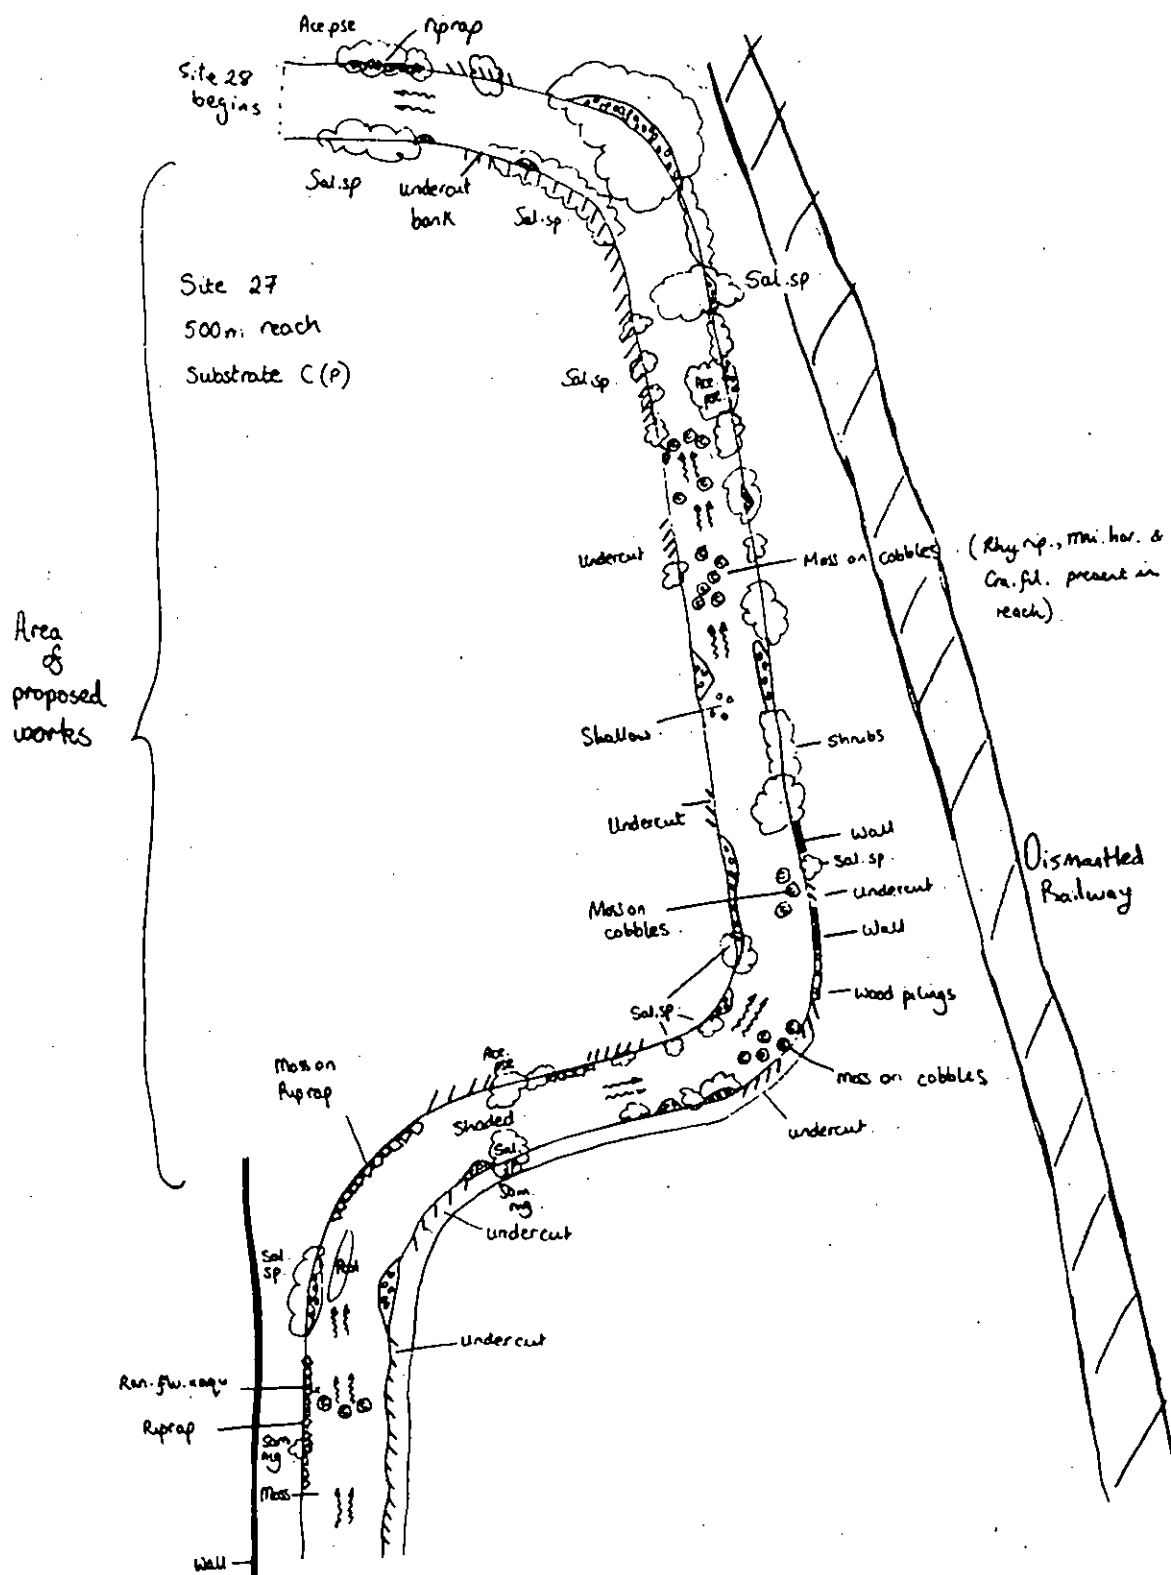 Ace.pse
riprap
Site 28
begins
Sal.sp
undercut
bank
Sal.sp
Site 27
500m reach
Substrate C (P)
Sal.sp
Sal.sp
Ace.
pse
undercut
Moss on cobbles
(Rhy rip., mni. hor. &
Cra. fil. present in
reach)
Area
of
proposed
works
Shallow
Shrubs
Undercut
Wall
Sal.sp.
undercut
Dismantled
Railway
Moss on
cobbles
Wall
Wood pilings
Sal.sp
Ace.
pse
Moss on
Riprap
moss on cobbles
Shaded
undercut
Sal.
sp
Sam.
nig
undercut
Sal.
sp.
Pool
undercut
Ran. flu. x aqu
Riprap
Sam
nig
Moss
Wall